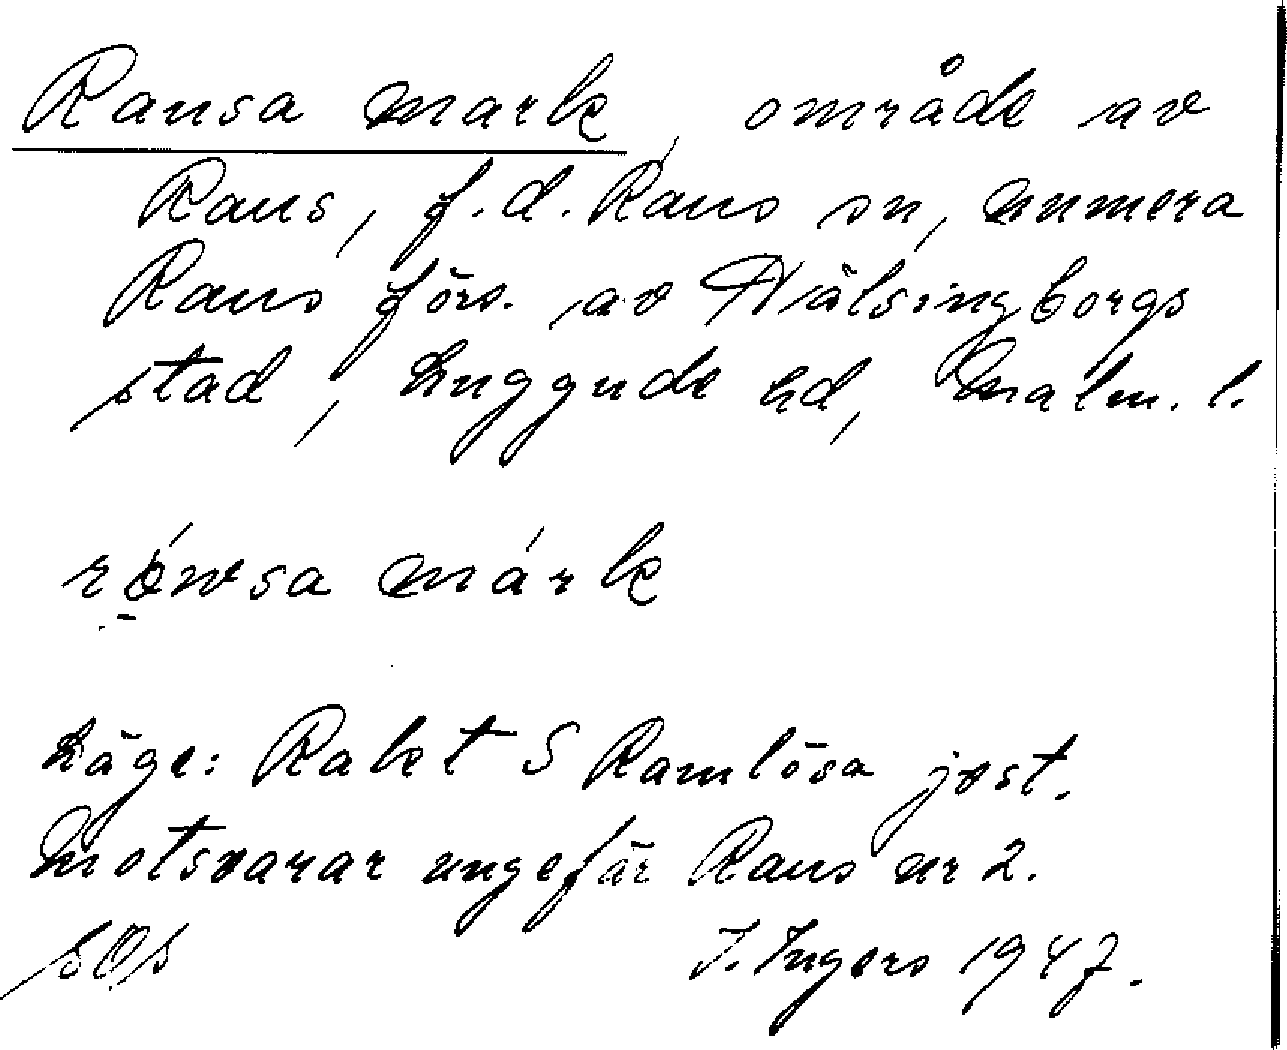 Rausa mark, område av
Raus, f.d. Raus sn, numera
Raus förs. av Hälsingborgs
stad, Luggude hd, Malm. l.
Läge: Rakt S Ramlösa jvst.
Motsvarar ungefär Raus nr 2.
I. Ingers 1947.